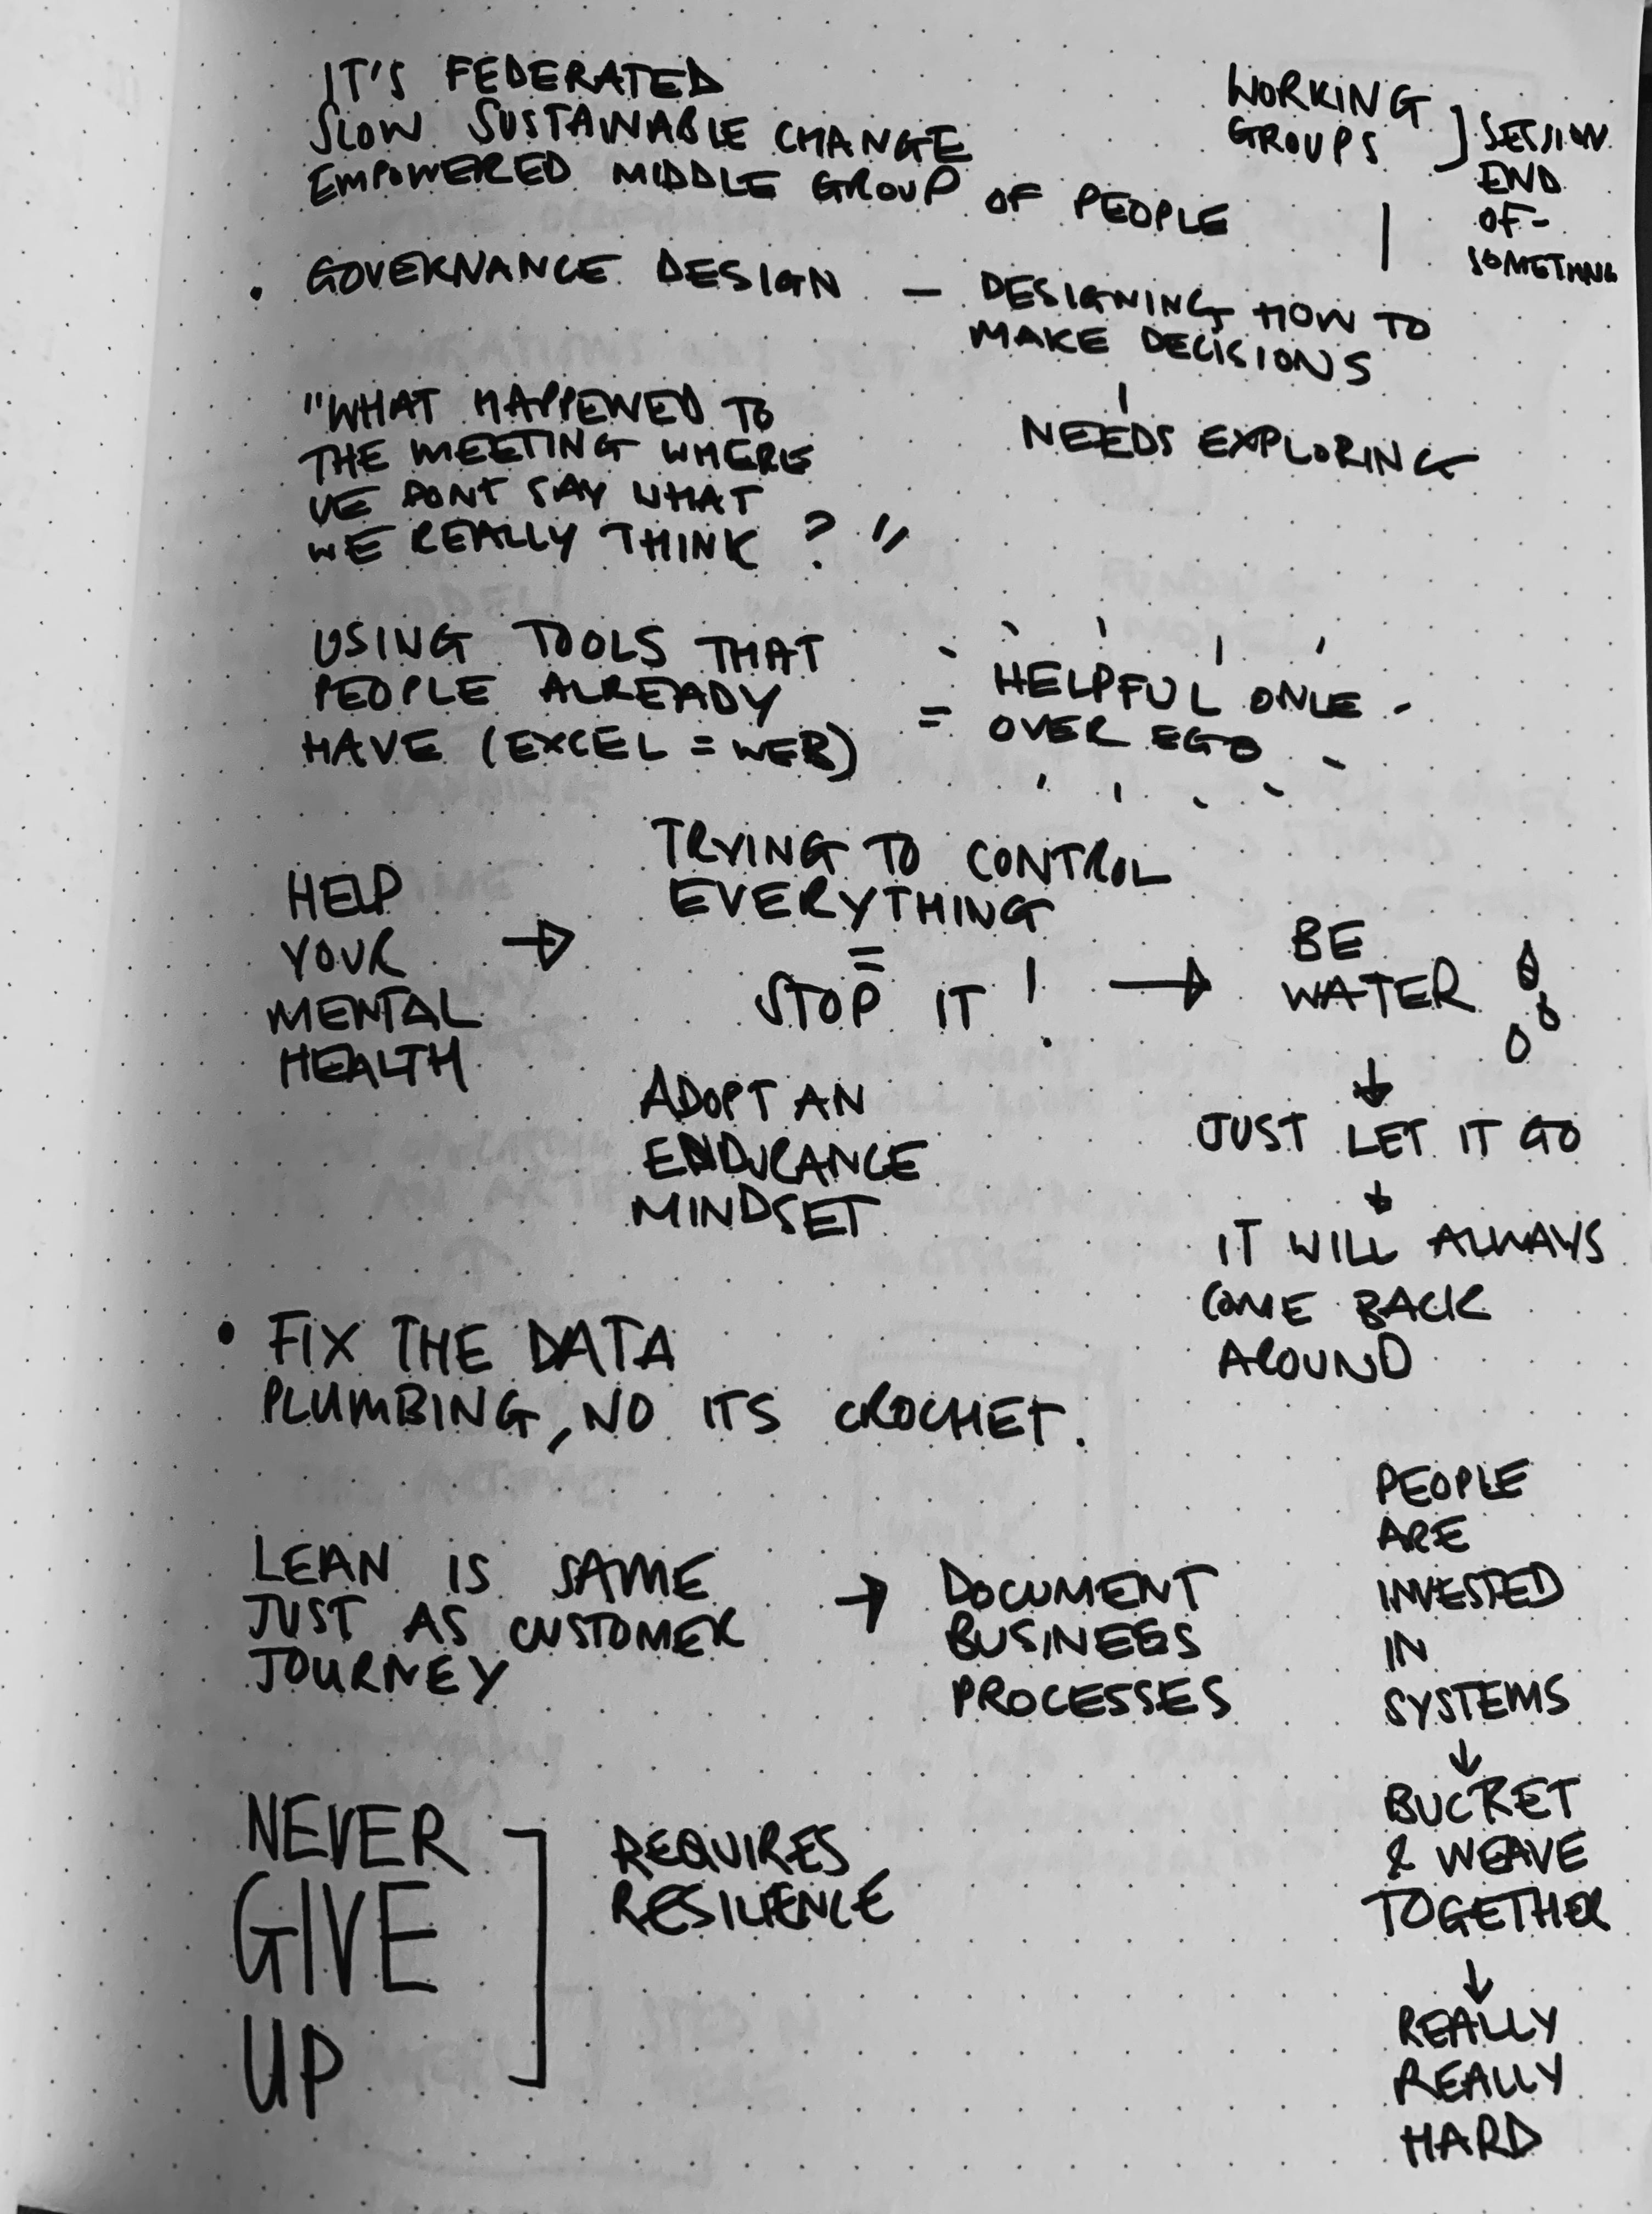 IT'S FEDERATED
SLOW SUSTAINABLE CHANGE
EMPOWERED MIDDLE GROUP OF PEOPLE
WORKING
GROUPS
SESSION
END
OF-
SOMETHING
GOVERNANCE DESIGN — DESIGNING HOW TO
MAKE DECISIONS
NEEDS EXPLORING
"WHAT HAPPENED TO
THE MEETING WHERE
WE DONT SAY WHAT
WE REALLY THINK ? "
USING TOOLS THAT
PEOPLE ALREADY
HAVE (EXCEL = WEB)
= HELPFUL ONLE
OVER EGO
HELP
YOUR
MENTAL
HEALTH
→
TRYING TO CONTROL
EVERYTHING
=
STOP IT !
→
BE
WATER
↓
JUST LET IT GO
↓
IT WILL ALWAYS
COME BACK
AROUND
ADOPT AN
ENDURANCE
MINDSET
• FIX THE DATA
PLUMBING, NO ITS CROCHET.
LEAN IS SAME
JUST AS CUSTOMER
JOURNEY
→ DOCUMENT
BUSINEES
PROCESSES
PEOPLE
ARE
INVESTED
IN
SYSTEMS
↓
BUCKET
& WEAVE
TOGETHER
↓
REALLY
REALLY
HARD
NEVER
GIVE
UP
REQUIRES
RESILIENCE